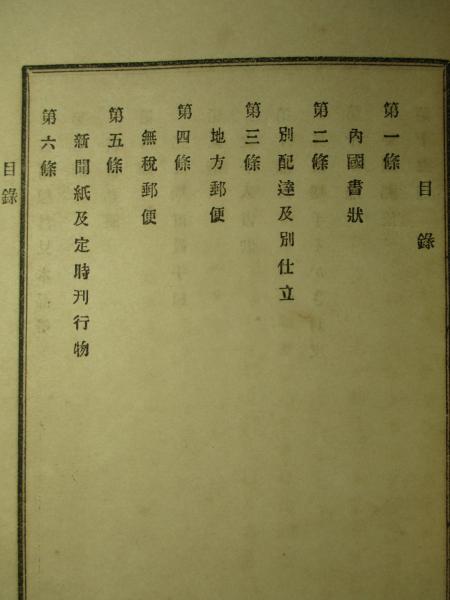 目錄
第一條
內國書狀
第二條
別配達及別仕立
第三條
地方郵便
第四條
無稅郵便
第五條
新聞紙及定時刊行物
第六條
目錄